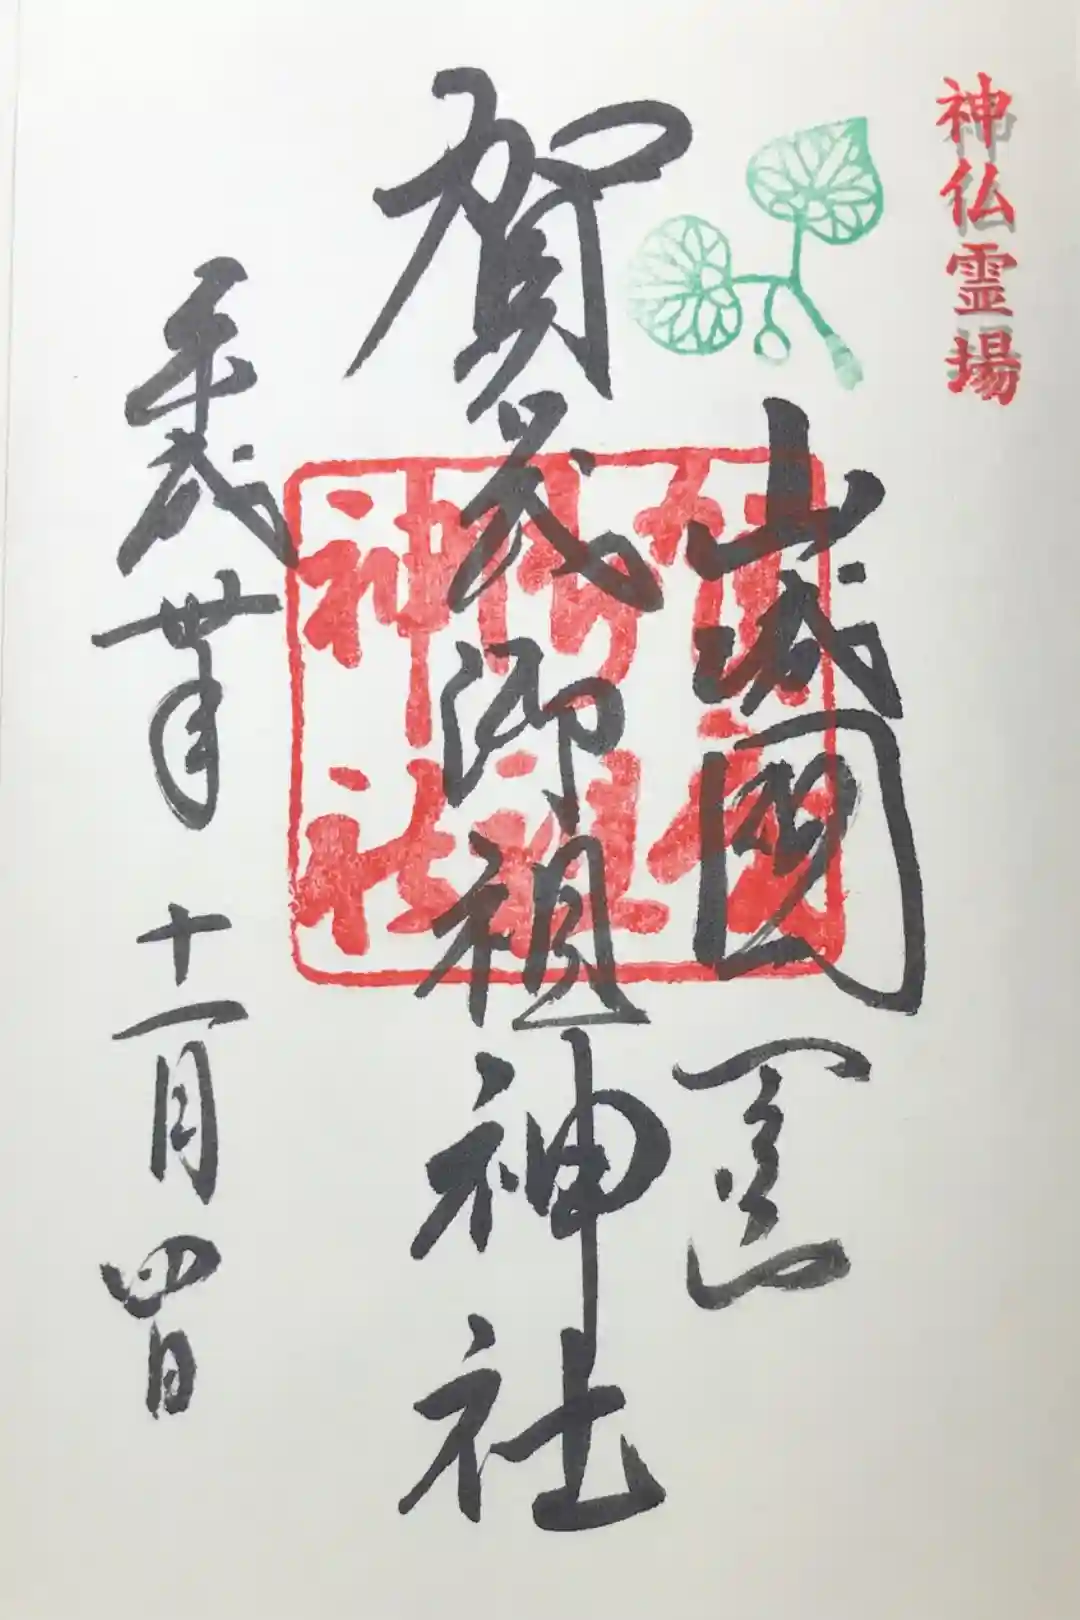 神仏霊場
山城國一宮
賀茂御祖神社
平成丗年十一月四日
御祖
神社